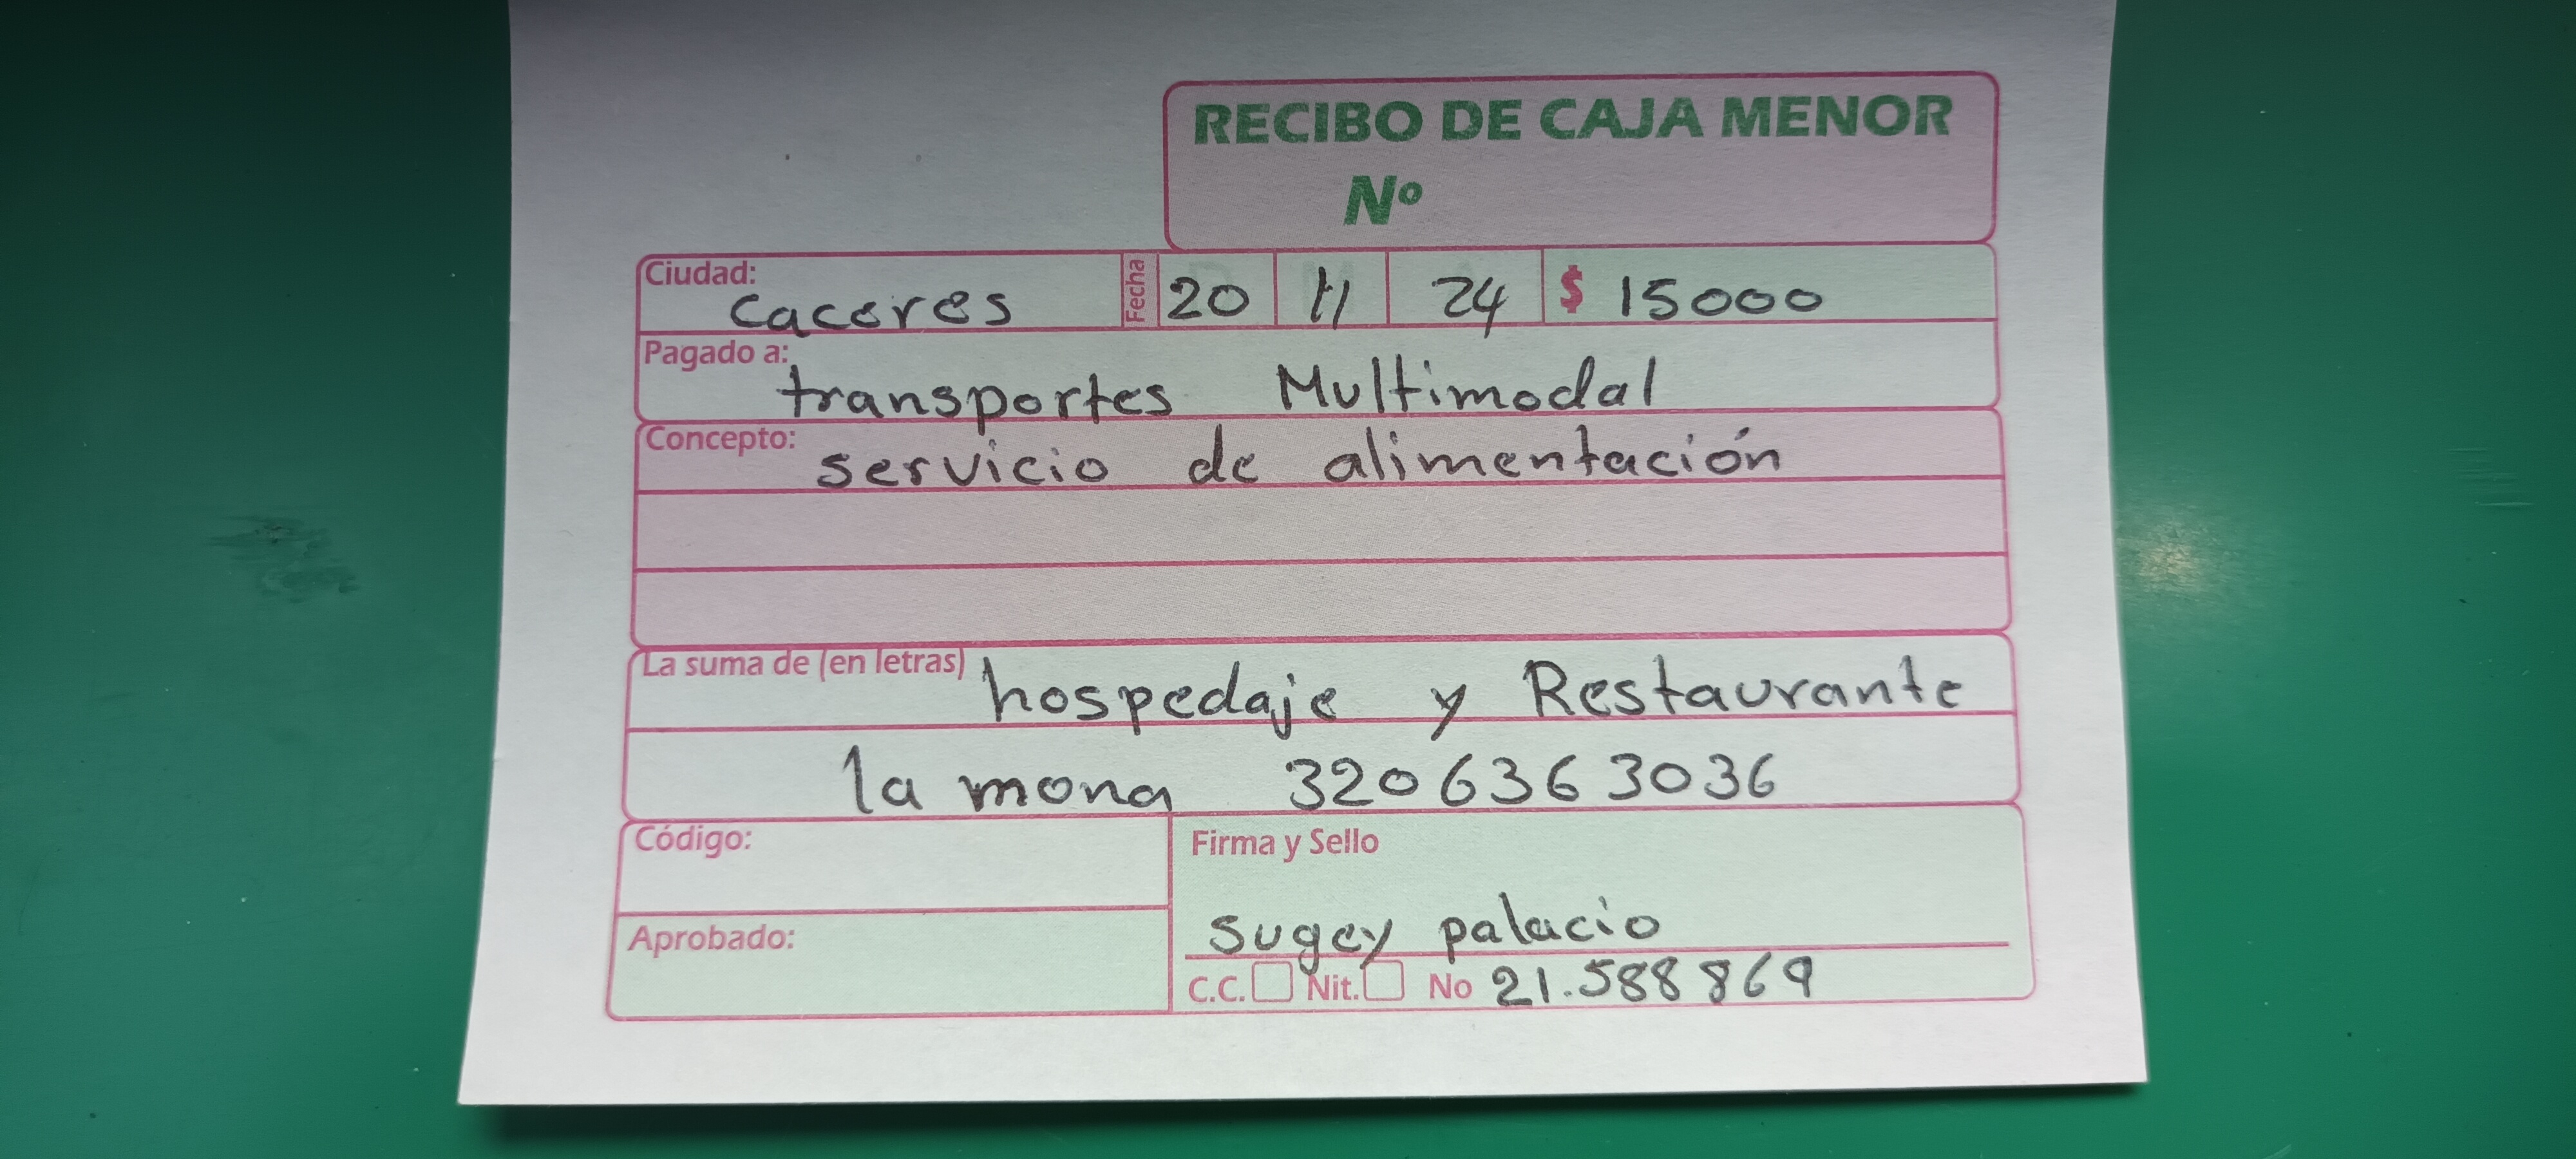 RECIBO DE CAJA MENOR
Nº
Ciudad: caceres Fecha 20 11 24 $ 15000
Pagado a: transportes Multimodal
Concepto: servicio de alimentación
La suma de (en letras) hospedaje y Restaurante
la mona 320 636 3036
Código:
Firma y Sello
Aprobado:
sugey palacio
C.C. Nit. No 21.588 869